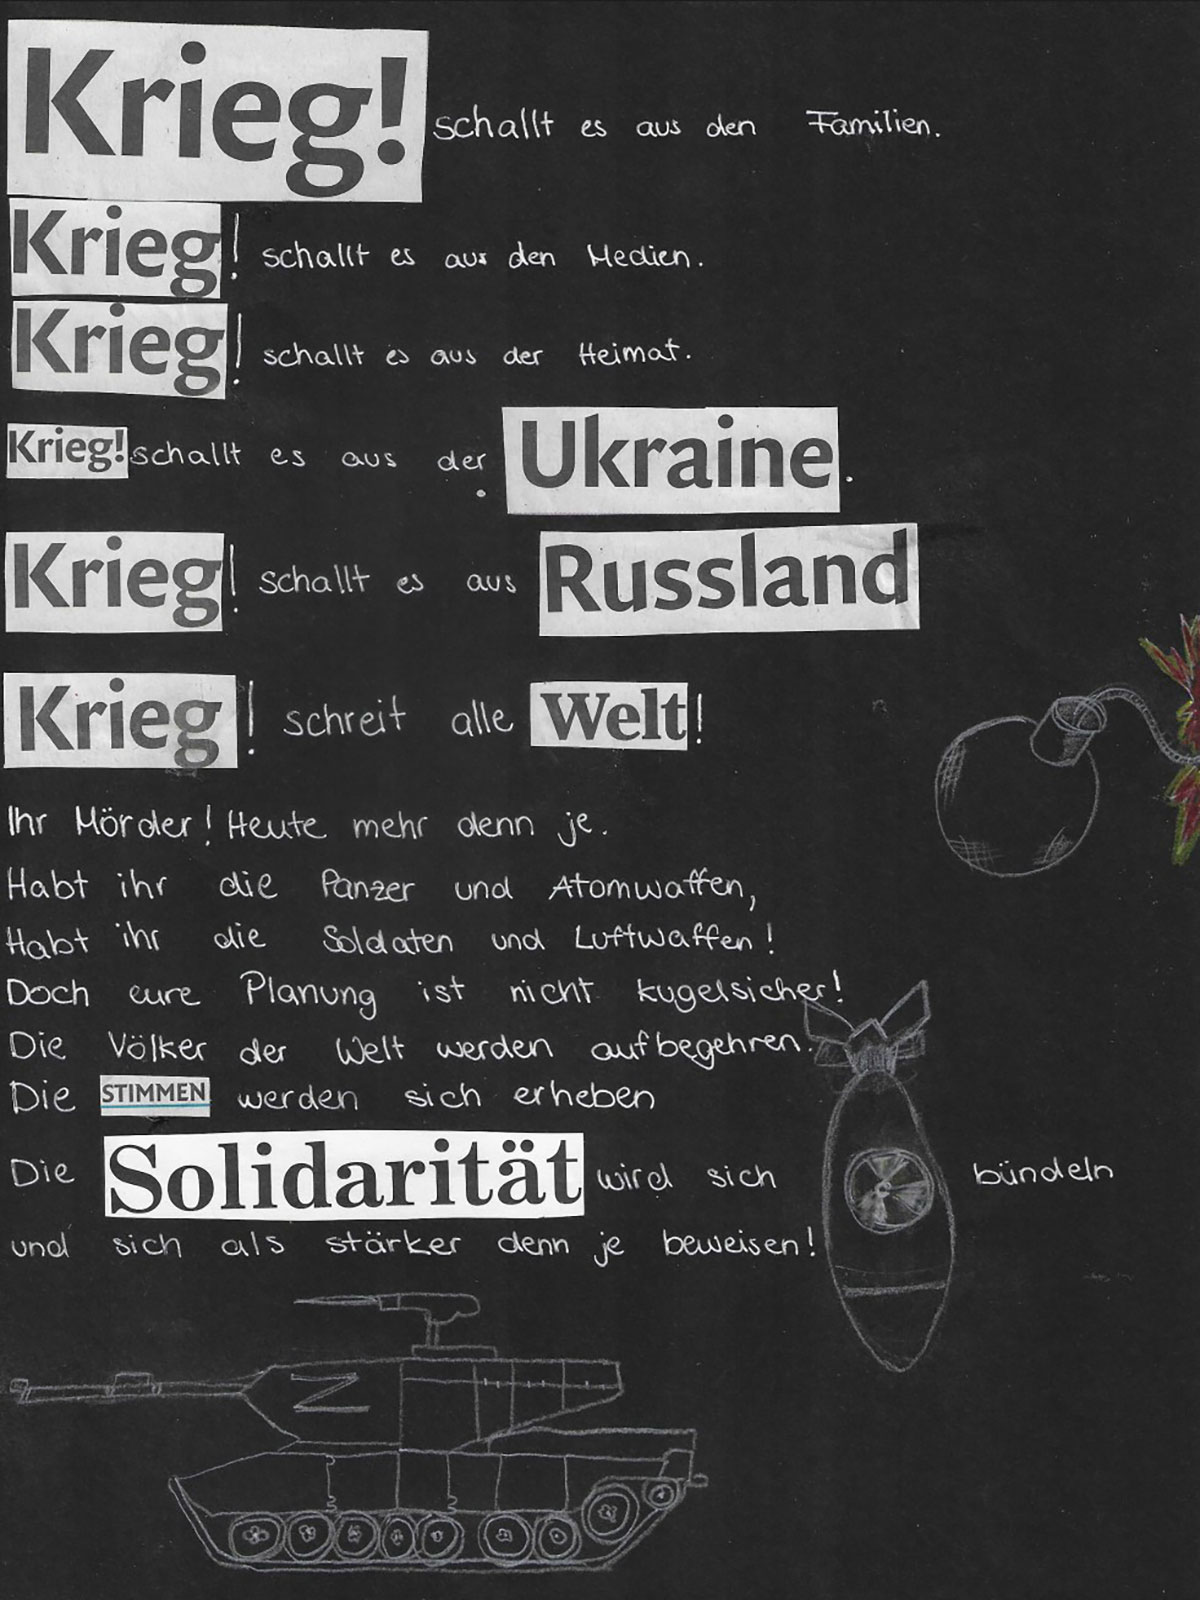 Krieg! schallt es aus den Familien.
Krieg! schallt es aus den Medien.
Krieg! schallt es aus der Heimat.
Krieg! schallt es aus der Ukraine.
Krieg! schallt es aus Russland
Krieg! schreit alle Welt!
Ihr Mörder! Heute mehr denn je.
Habt ihr die Panzer und Atomwaffen,
Habt ihr die Soldaten und Luftwaffen!
Doch eure Planung ist nicht kugelsicher!
Die Völker der Welt werden aufbegehren.
Die STIMMEN werden sich erheben
Die Solidarität wird sich bündeln
und sich als stärker denn je beweisen!
Z